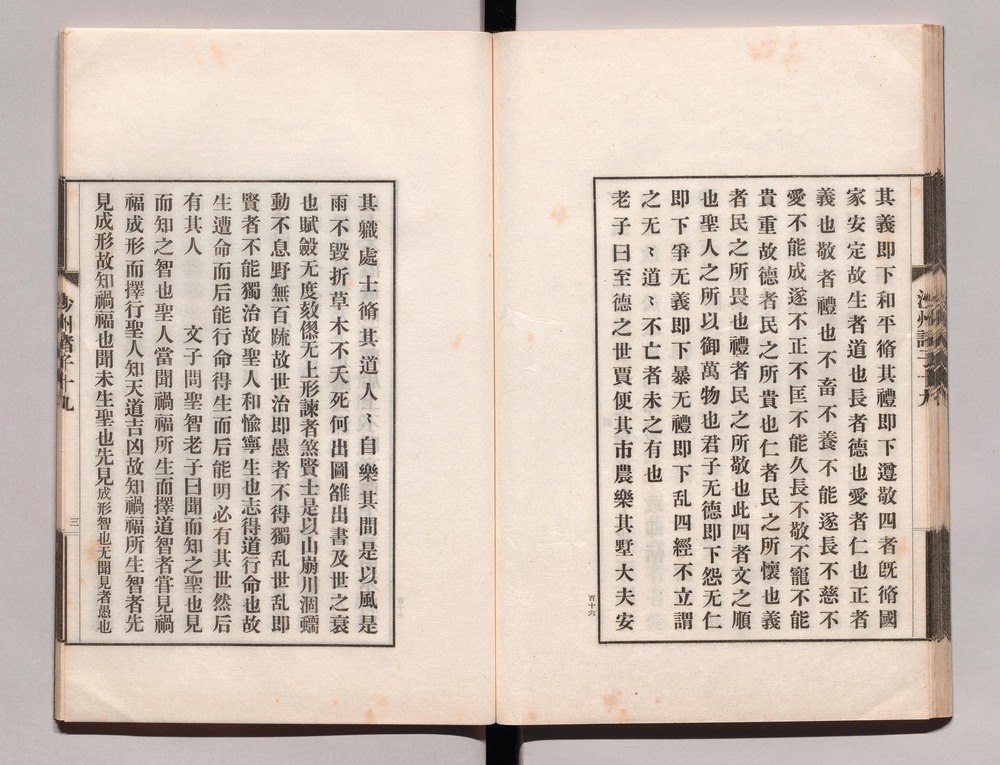 其義即下和平脩其禮即下遵敬四者既脩國
家安定故生者道也長者德也愛者仁也正者
義也敬者禮也不畜不養不能遂長不慈不
愛不能成遂不正不匡不能久長不敬不寵不能
貴重故德者民之所貴也仁者民之所懷也義
者民之所畏也禮者民之所敬也此四者文之順
也聖人之所以御萬物也君子无德即下怨无仁
即下爭无義即下暴无禮即下乱四經不立謂
之无〻道〻不亡者未之有也
老子曰至德之世賈便其市農樂其墅大夫安
百十六
其軄處士脩其道人〻自樂其間是以風是
雨不毀折草木不夭死何出圖雒出書及世之衰
也賦斂无度敎傑无上形諫者煞賢士是以山崩川涸蠕
動不息野無百䟽故世治即愚者不得獨乱世乱即
賢者不能獨治故聖人和愉寧生也志得道行命也故
生遭命而后能行命得生而后能明必有其世然后
有其人 文子問聖智老子曰聞而知之聖也見
而知之智也聖人當聞禍福所生而擇道智者甞見禍
福成形而擇行聖人知天道吉凶故知禍福所生智者先
見成形故知禍福也聞未生聖也先見成形智也无聞見者愚也
沙州諸子十九
三